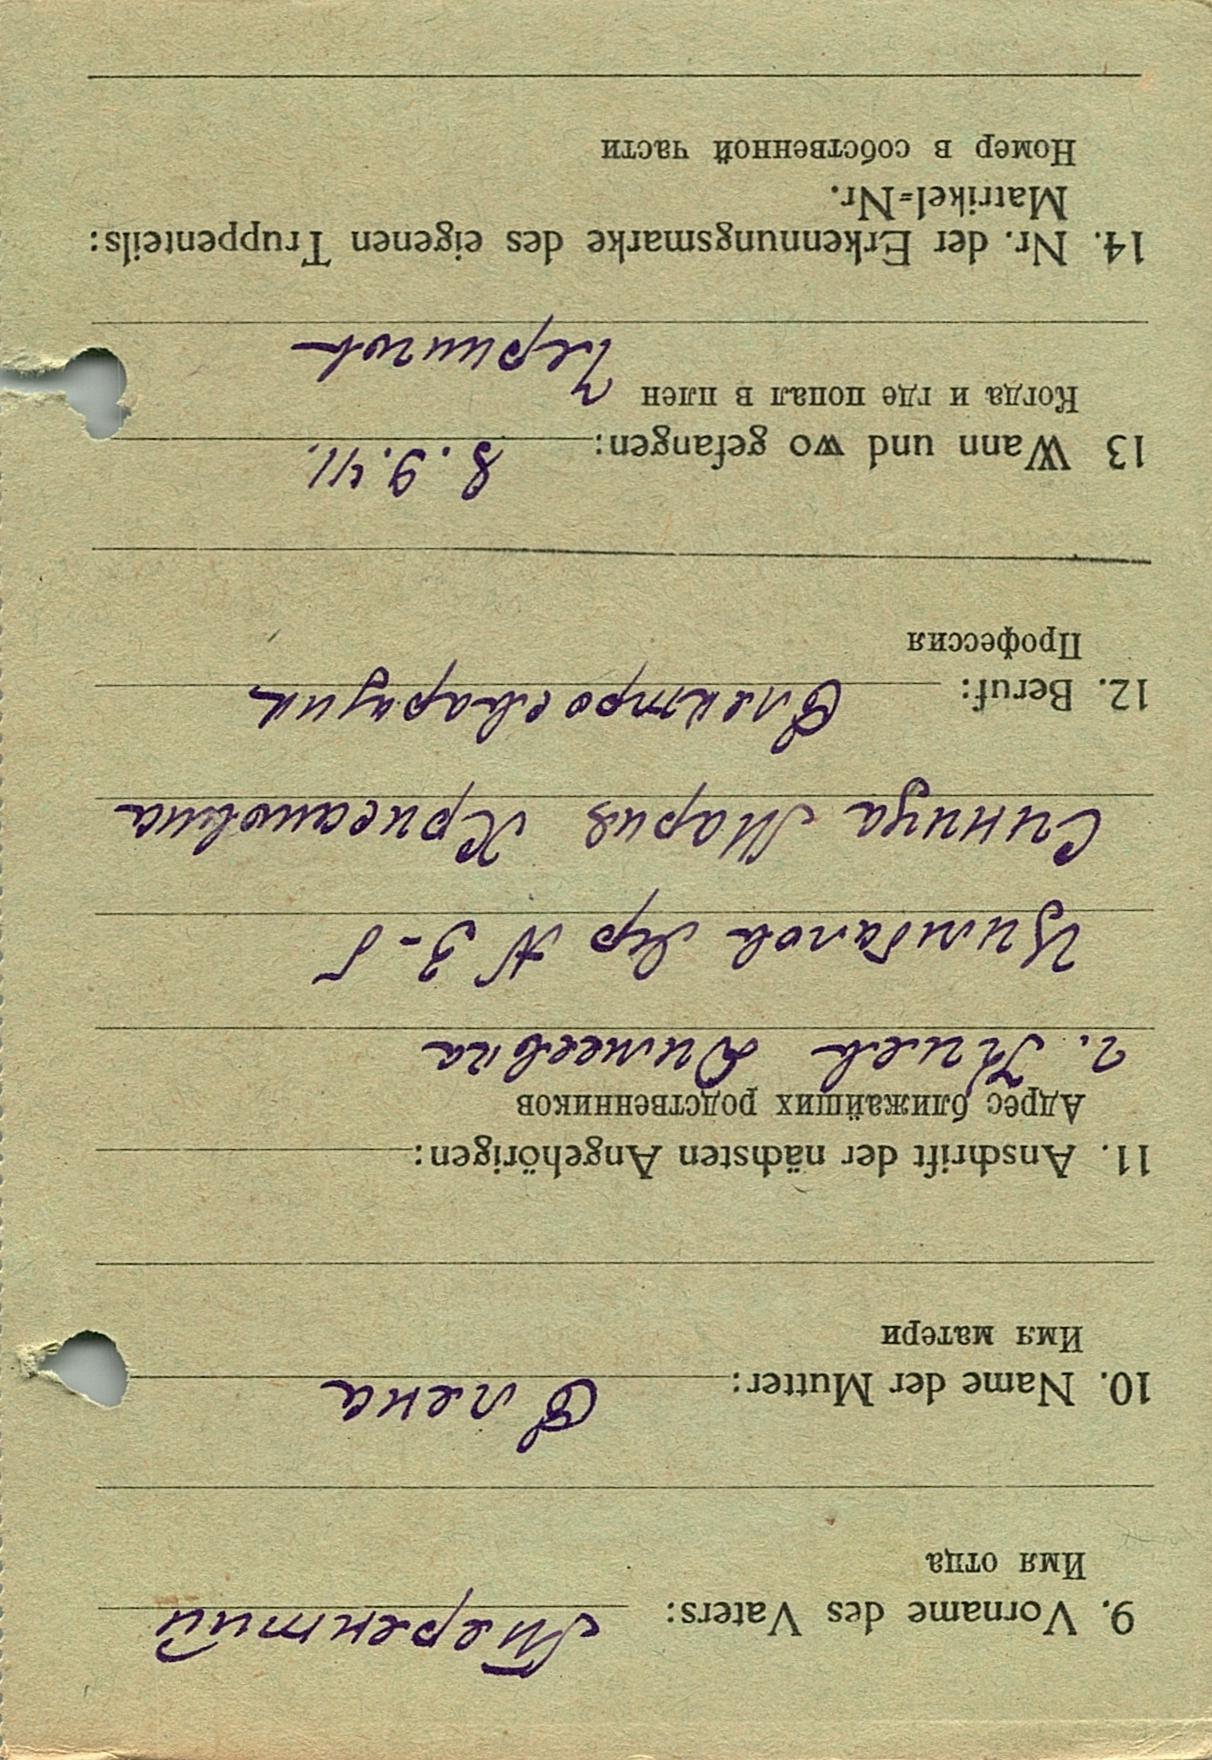 9. Vorname des Vaters: Терентий
Имя отца
10. Name der Mutter: Олена
Имя матери
11. Anschrift der nächsten Angehörigen:
Адрес ближайших родственников
г. Киев
N 3-
Синица Мария Хрисановна
12. Beruf: Электросварщик
Профессия
13 Wann und wo gefangen: 8.9.41.
Когда и где попал в плен Чернигов
14. Nr. der Erkennungsmarke des eigenen Truppenteils:
Matrikel=Nr.
Номер в собственной части